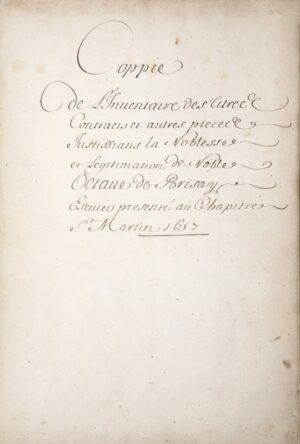 Coppie
de L'Inuentaire des titrece
Contracts et autres piecece
Justifians la Noblesse
et Legitimation de Noble
Octaue de Brisay
presenté au Chapitre
St Martin 1657